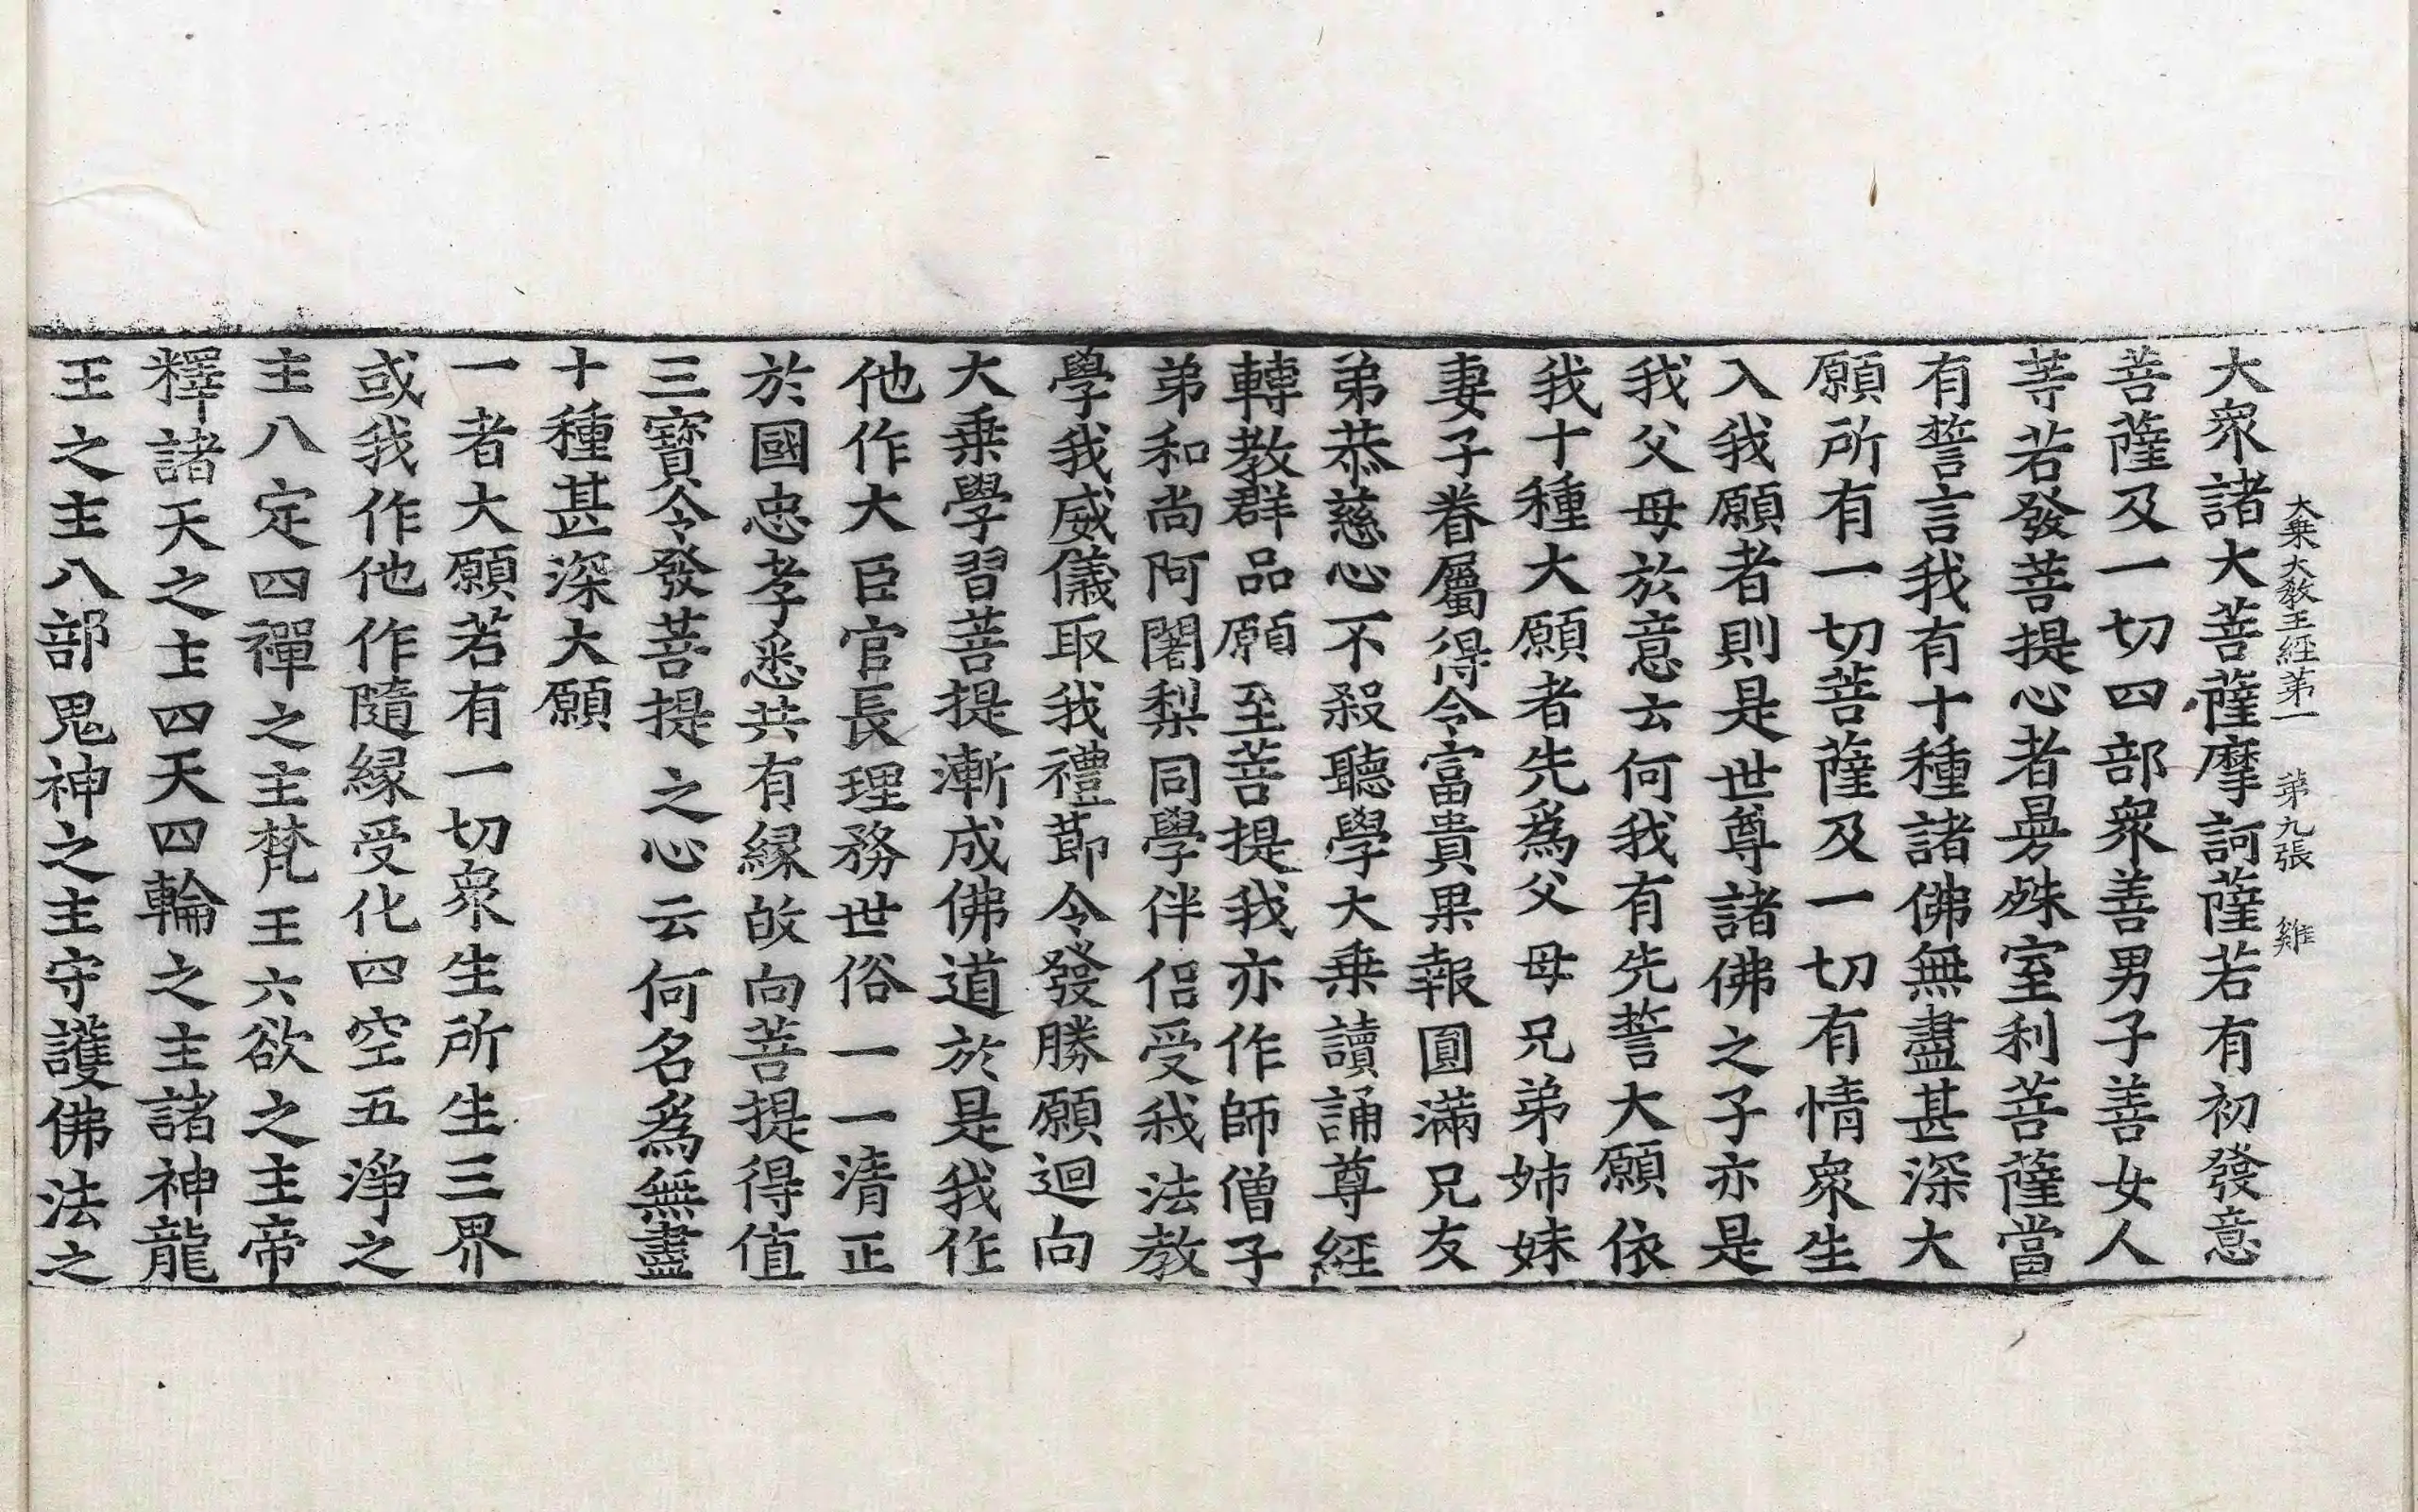 大乗大敎王經苐一　苐九張　雞
大衆諸大菩薩摩訶薩若有初發意
菩薩及一切四部衆善男子善女人
等若發菩提心者曼殊室利菩薩當
有誓言我有十種諸佛無盡甚深大
願所有一切菩薩及一切有情衆生
入我願者則是世尊諸佛之子亦是
我父母於意云何我有先誓大願依
我十種大願者先爲父母兄弟姊妹
妻子眷屬得令富貴果報圓滿兄友
弟恭慈心不殺聽學大乗讀誦尊經
轉教群品願至菩提我亦作師僧子
弟和尚阿闍梨同學伴侣受我法教
學我威儀取我禮節令發勝願迴向
大乗學習菩提漸成佛道於是我作
他作大臣官長理務世俗一一清正
於國忠孝悉共有縁故向菩提得值
三寶令發菩提之心云何名爲無盡
十種甚深大願
一者大願若有一切衆生所生三界
或我作他作隨縁受化四空五淨之
主八定四禪之主梵王六欲之主帝
釋諸天之主四天四輪之主諸神龍
王之主八部鬼神之主守護佛法之